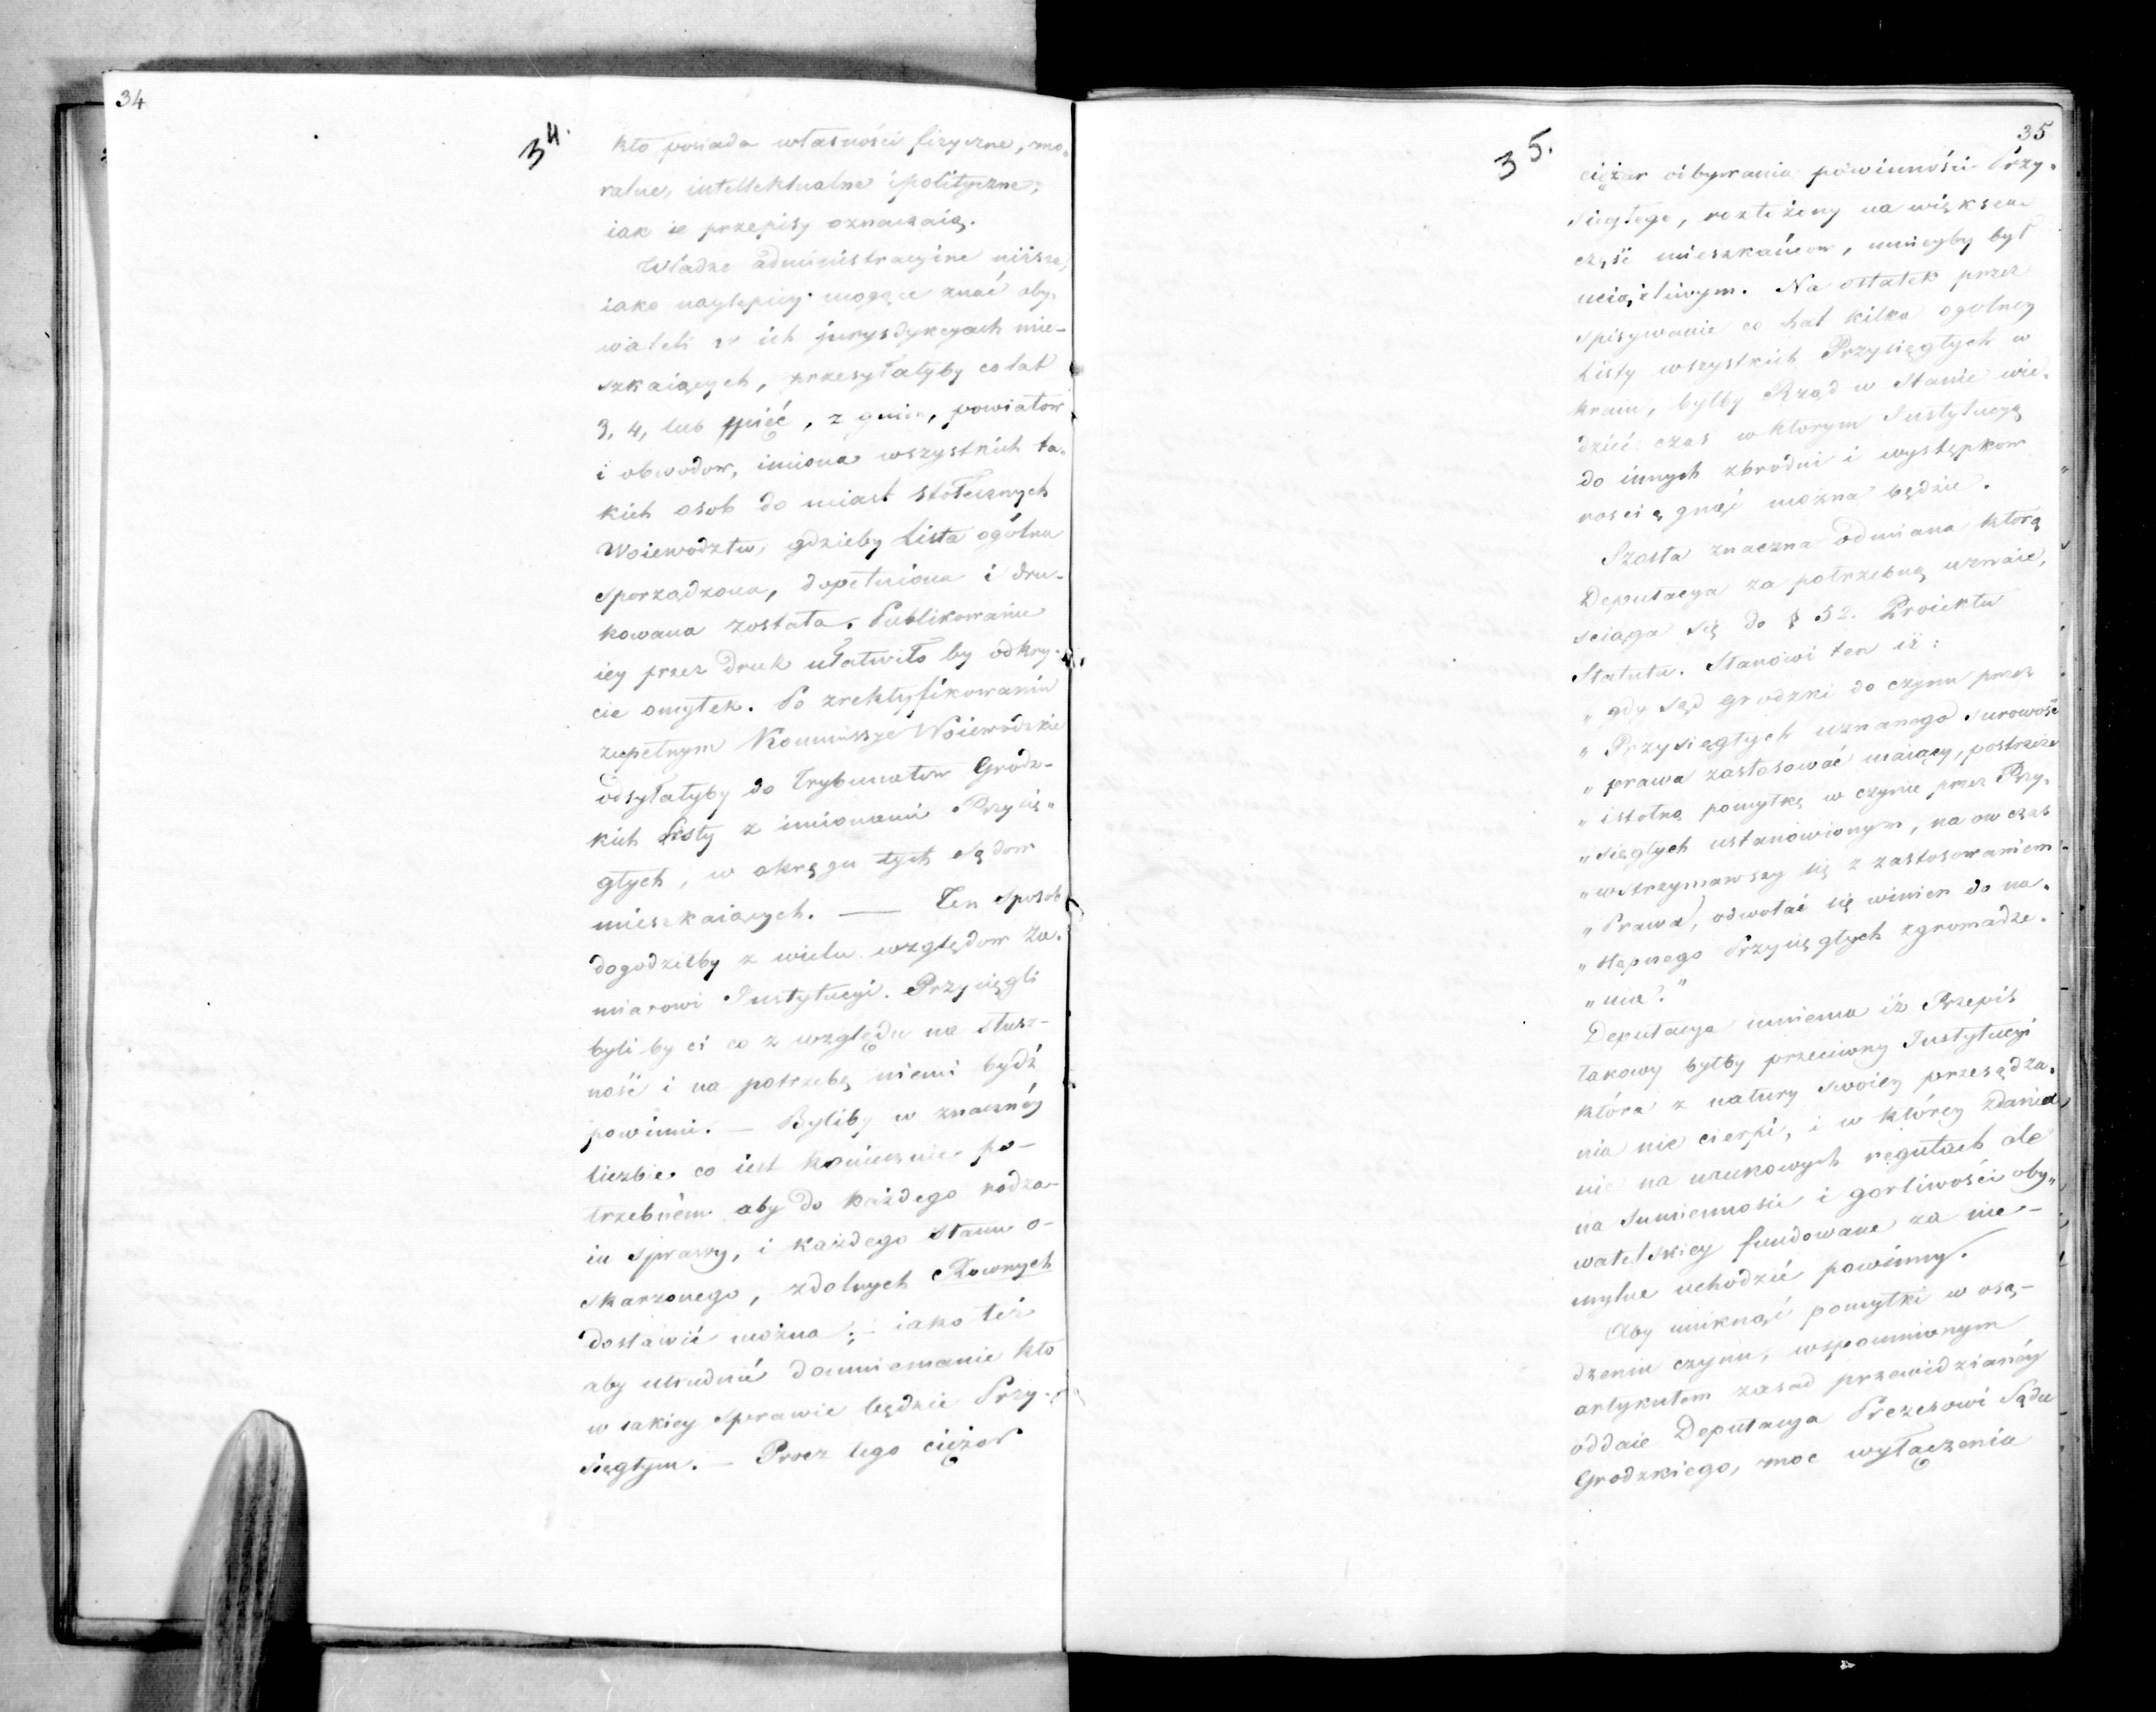 34
34.
kto posiada własności fizyczne, mo-
ralne, intellektualne i polityczne;
iak ie przepisy oznaczaią.
Władze administracyine niższe,
iako naylepiey mogące znać oby-
wateli w ich jurysdykcyach mie-
szkaiących, przesyłałyby co lat
3, 4, lub pięć, z gmin, powiatow
i obwodow, imiona wszystkich ta-
kich osob do miast stołecznych
Woiewodztw, gdzieby Lista ogólna
sporządzona, dopełniona i dru-
kowana została. Publikowanie
iey przez druk ułatwiło by odkry-
cie omyłek. Po zrektyfikowaniu
zupełnym Kommissye Woiewodzkie
odsyłałyby do Trybunałow Grodz-
kich Listy z imionami Przysię-
głych, w okręgu tych sądow
mieszkaiących. — Ten sposob
dogodziłby z wielu względow za-
miarowi Instytucyi. Przysięgli
byli by ci co z względu na słusz-
ność i na potrzebę niemi bydź
powinni. — Byliby w znacznéy
liczbie co iest koniecznie po-
trzebném aby do każdego rodza-
iu sprawy, i każdego stanu o-
skarżonego, zdolnych Rownych
dostawić można; - iako też
aby utrudnić domniemanie kto
w iakiey sprawie będzie Przy-
sięgłym. — Przez tego ciężar
35
35.
ciężar odbywania powinności Przy-
sięgłego, rozłożony na większą
część mieszkańcow, mnieyby był
uciążliwym. Na ostatek przez
spisywanie co lat kilka ogólney
Listy wszystkich Przysięgłych w
kraiu, byłby Rząd w Stanie wie-
dzieć czas w ktorym Instytucyą
do innych zbrodni i występkow
rościągnąć można będzie.
Szosta znaczna odmiana ktorą
Deputacya za potrzebną uznaie,
sciąga się do § 52. Proiektu
Statutu. Stanowi ten iż:
„ gdy Sąd grodzki do czynu przez
„ Przysięgłych uznanego surowość
„ prawa zastosować maiący, postrzeże
„ istotną pomyłkę w czynie przez Przy-
„ sięgłych ustanowionym, na ow czas
„ wstrzymawszy się z zastosowaniem
„ Prawa, odwołać się winien do na-
„ stępnego Przysięgłych zgromadze-
„ nia."
Deputacya mniema iż Przepis
takowy byłby przeciwny Instytucyi
która z natury swoiey przesądza-
nia nie cierpi, i w którey zdania,
nie na naukowych regułach ale
na sumienności i gorliwości oby-
watelskiey fundowane za nie-
mylne uchodzić powinny.
Aby uniknąć pomyłki w osą-
dzeniu czynu, wspomnionym
artykułem zasad przewidzianéy
oddaie Deputacya Prezesowi Sądu
Grodzkiego, moc wyłączenia